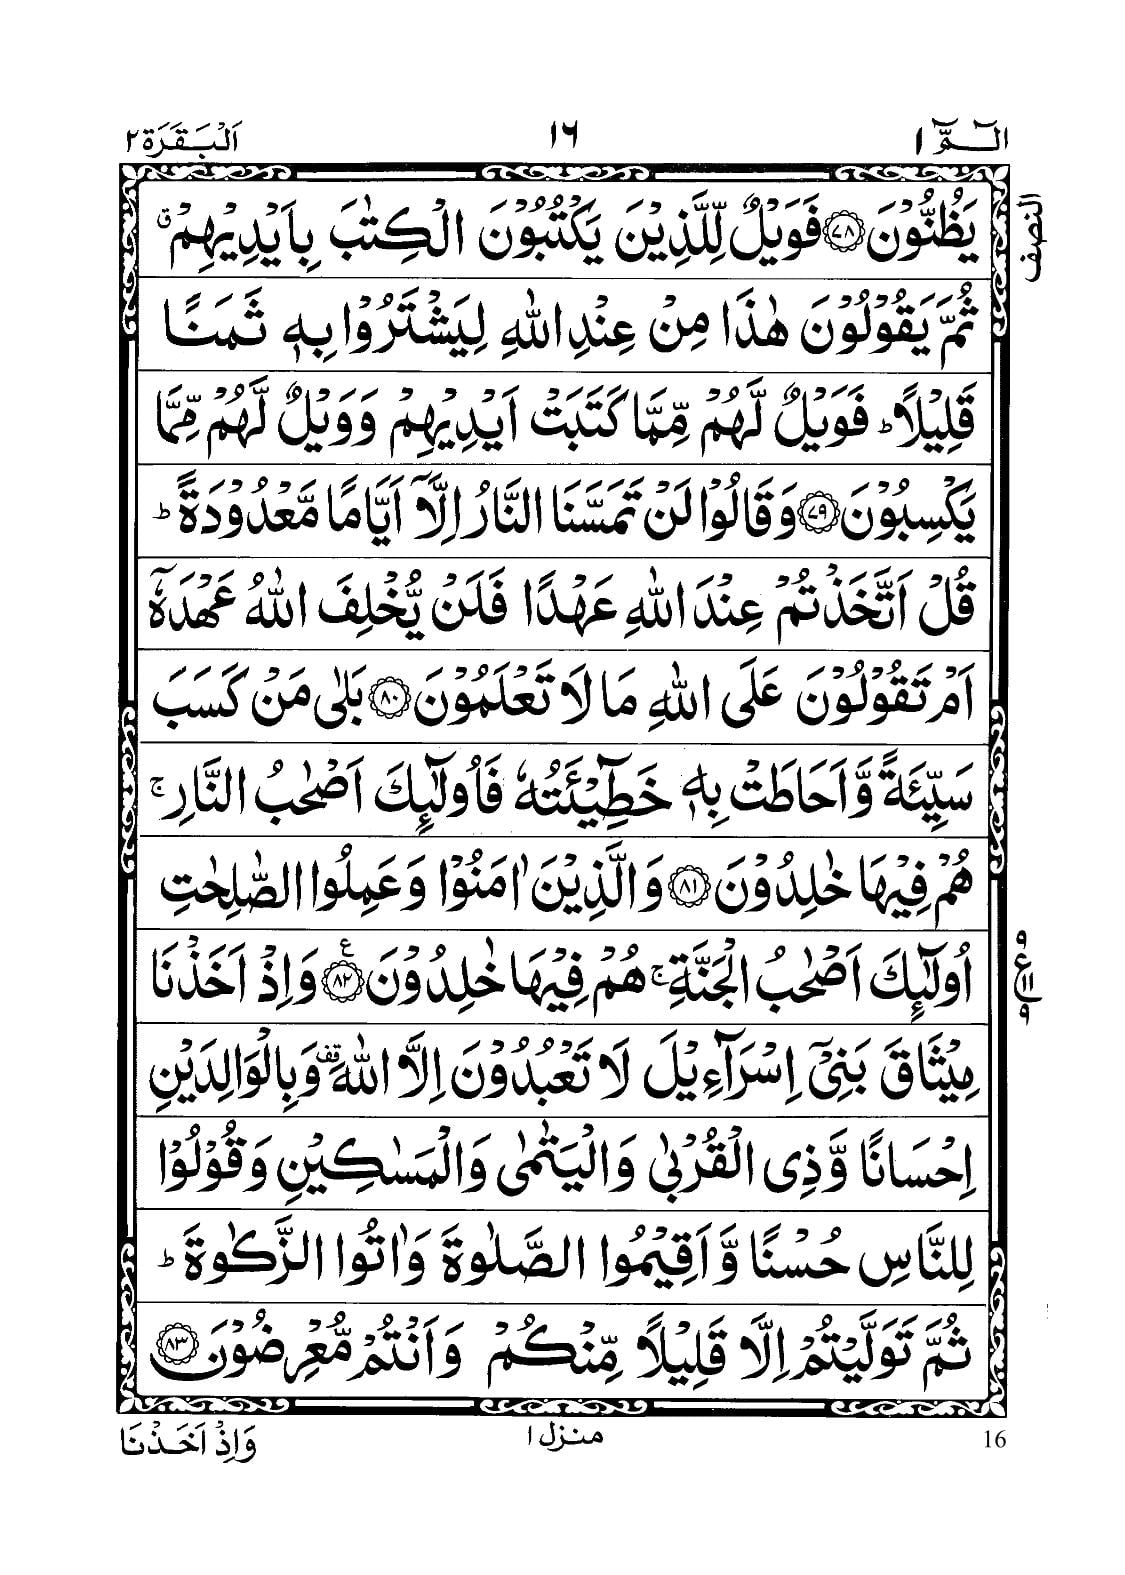 الٓمّٓ ١ ١٦ اَلْبَقَرَة ٢
النصف
يَظُنُّوْنَ ﴿٧٨﴾ فَوَيْلٌ لِّلَّذِيْنَ يَكْتُبُوْنَ الْكِتٰبَ بِاَيْدِيْهِمْ ۗ
ثُمَّ يَقُوْلُوْنَ هٰذَا مِنْ عِنْدِ اللّٰهِ لِيَشْتَرُوْا بِهٖ ثَمَنًا
قَلِيْلًا ؕ فَوَيْلٌ لَّهُمْ مِّمَّا كَتَبَتْ اَيْدِيْهِمْ وَوَيْلٌ لَّهُمْ مِّمَّا
يَكْسِبُوْنَ ﴿٧٩﴾ وَقَالُوْا لَنْ تَمَسَّنَا النَّارُ اِلَّاۤ اَيَّامًا مَّعْدُوْدَةً ؕ
قُلْ اَتَّخَذْتُمْ عِنْدَ اللّٰهِ عَهْدًا فَلَنْ يُّخْلِفَ اللّٰهُ عَهْدَهٗۤ
اَمْ تَقُوْلُوْنَ عَلَى اللّٰهِ مَا لَا تَعْلَمُوْنَ ﴿٨٠﴾ بَلٰى مَنْ كَسَبَ
سَيِّئَةً وَّاَحَاطَتْ بِهٖ خَطِيْٓئَتُهٗ فَاُولٰٓئِكَ اَصْحٰبُ النَّارِ ۚ
هُمْ فِيْهَا خٰلِدُوْنَ ﴿٨١﴾ وَالَّذِيْنَ اٰمَنُوْا وَعَمِلُوا الصّٰلِحٰتِ
اُولٰٓئِكَ اَصْحٰبُ الْجَنَّةِ ۚ هُمْ فِيْهَا خٰلِدُوْنَ ﴿٨٢﴾ ع وَاِذْ اَخَذْنَا
٩ ع ١١ ٩
مِيْثَاقَ بَنِيْٓ اِسْرَآءِيْلَ لَا تَعْبُدُوْنَ اِلَّا اللّٰهَ قف وَبِالْوَالِدَيْنِ
اِحْسَانًا وَّذِى الْقُرْبٰى وَالْيَتٰمٰى وَالْمَسٰكِيْنِ وَقُوْلُوْا
لِلنَّاسِ حُسْنًا وَّاَقِيْمُوا الصَّلٰوةَ وَاٰتُوا الزَّكٰوةَ ؕ
ثُمَّ تَوَلَّيْتُمْ اِلَّا قَلِيْلًا مِّنْكُمْ وَاَنْتُمْ مُّعْرِضُوْنَ ﴿٨٣﴾
16 منزل ١ وَاِذْ اَخَذْنَا